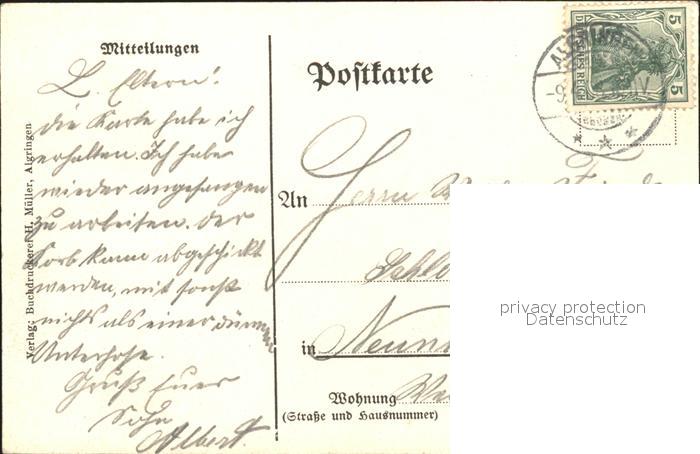 Mitteilungen
L. Eltern!
Die Karte habe ich
erhalten. Ich habe
wieder angefangen
zu arbeiten. Der
Korb kann abgeschickt
werden, mit sonst
nichts als einer dünnen
Unterhose.
Gruß Euer
Sohn
Albert.
Verlag: Buchdruckerei H. Müller, Algringen
Postkarte
5 5
DEUTSCHES REICH
ALGRINGEN
An Herrn
in
Wohnung
(Straße und Hausnummer)
privacy protection
Datenschutz